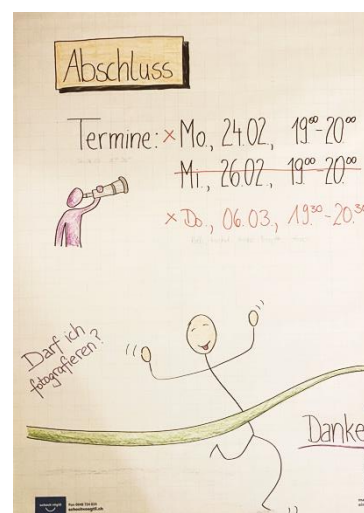 Abschluss
Termine: × Mo., 24.02., 19⁰⁰-20⁰⁰
Mi., 26.02., 19⁰⁰-20⁰⁰
× Do., 06.03., 19³⁰-20.³⁰
Darf ich
fotografieren?
Danke